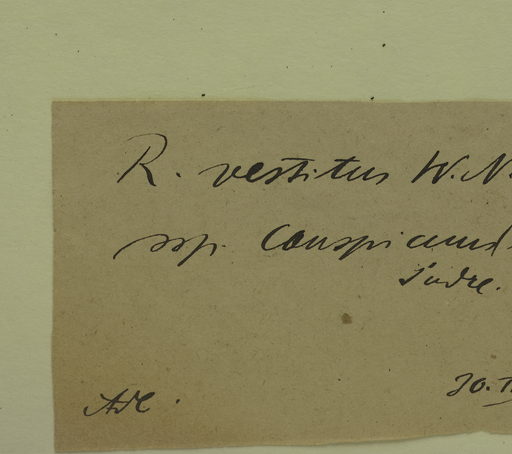 R. vestitus W.N.
ssp. Conspicuus
Sudre.
30.
Ade.